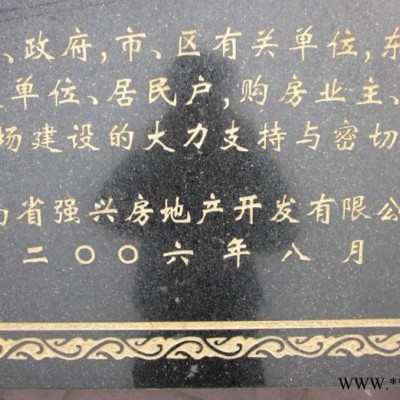 、政府,市、区有关单位,东
单位、居民户,购房业主、
场建设的大力支持与密切
省强兴房地产开发有限公
二〇〇六年八月
www.**